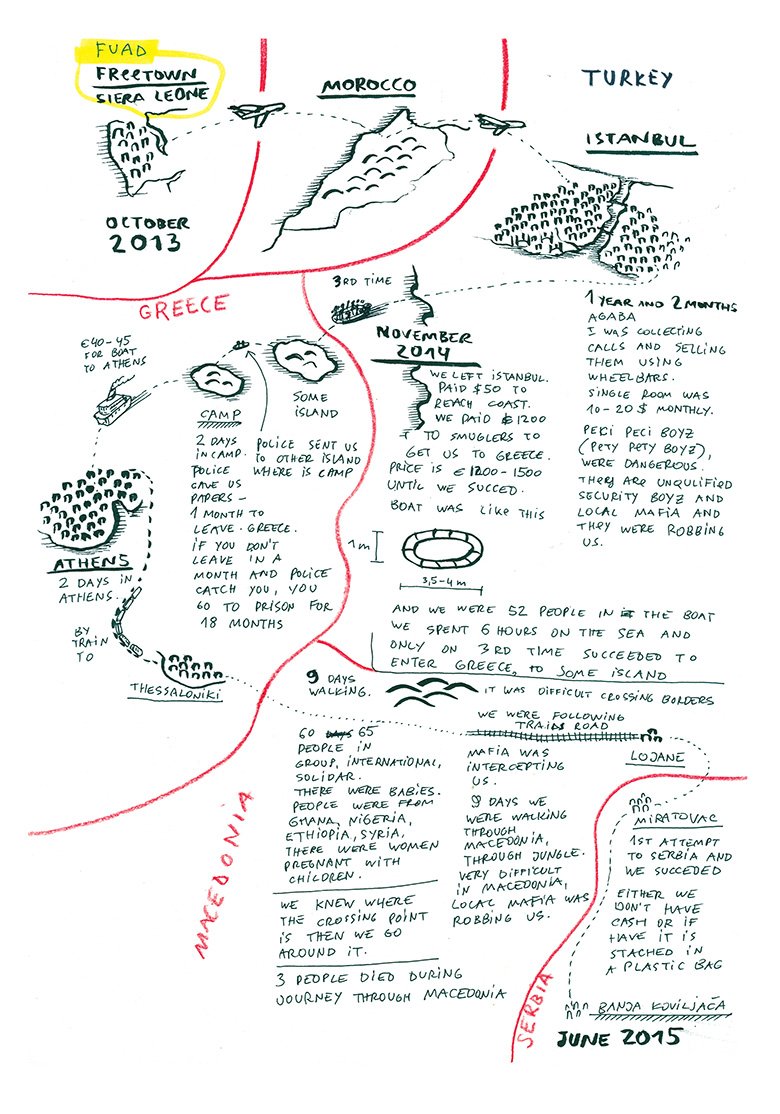 FUAD
FREETOWN
SIERA LEONE
OCTOBER
2013
MOROCCO
TURKEY
ISTANBUL
1 YEAR AND 2 MONTHS
AGABA
I WAS COLLECTING
CALLS AND SELLING
THEM USING
WHEELBARS.
SINGLE ROOM WAS
10-20 $ MONTHLY.
PECI PECI BOYZ
(PETY PETY BOYZ),
WERE DANGEROUS.
THERY ARE UNQULIFIED
SECURITY BOYZ AND
LOCAL MAFIA AND
THEY WERE ROBBING
US.
3RD TIME
NOVEMBER
2014
WE LEFT ISTANBUL.
PAID $50 TO
REACH COAST.
WE PAID $1200
TO SMUGLERS TO
GET US TO GREECE.
PRICE IS € 1200-1500
UNTIL WE SUCCED.
BOAT WAS LIKE THIS
1m
3,5-4 m
AND WE WERE 52 PEOPLE IN THE BOAT
WE SPENT 6 HOURS ON THE SEA AND
ONLY ON 3RD TIME SUCCEEDED TO
ENTER GREECE, TO SOME ISLAND
GREECE
SOME
ISLAND
POLICE SENT US
TO OTHER ISLAND
WHERE IS CAMP
CAMP
2 DAYS
IN CAMP.
POLICE
GAVE US
PAPERS -
1 MONTH TO
LEAVE GREECE.
IF YOU DON'T
LEAVE IN A
MONTH AND POLICE
CATCH YOU, YOU
GO TO PRISON FOR
18 MONTHS
€40-45
FOR BOAT
TO ATHENS
ATHENS
2 DAYS IN
ATHENS.
BY
TRAIN
TO
THESSALONIKI
MACEDONIA
9 DAYS
WALKING.
IT WAS DIFFICULT CROSSING BORDERS
WE WERE FOLLOWING
TRAIDS ROAD
LOJANE
60 DAYS 65
PEOPLE IN
GROUP, INTERNATIONAL,
SOLIDAR.
THERE WERE BABIES.
PEOPLE WERE FROM
GHANA, NIGERIA,
ETHIOPIA, SYRIA,
THERE WERE WOMEN
PREGNANT WITH
CHILDREN.
WE KNEW WHERE
THE CROSSING POINT
IS THEN WE GO
AROUND IT.
3 PEOPLE DIED DURING
JOURNEY THROUGH MACEDONIA
MAFIA WAS
INTERCEPTING
US.
9 DAYS WE
WERE WALKING
THROUGH
MACEDONIA,
THROUGH JUNGLE.
VERY DIFFICULT
IN MACEDONIA,
LOCAL MAFIA WAS
ROBBING US.
SERBIA
MIRATOVAC
1ST ATTEMPT
TO SERBIA AND
WE SUCCEDED
EITHER WE
DON'T HAVE
CASH OR IF
HAVE IT IS
STACHED IN
A PLASTIC BAG
BANJA KOVILJAČA
JUNE 2015